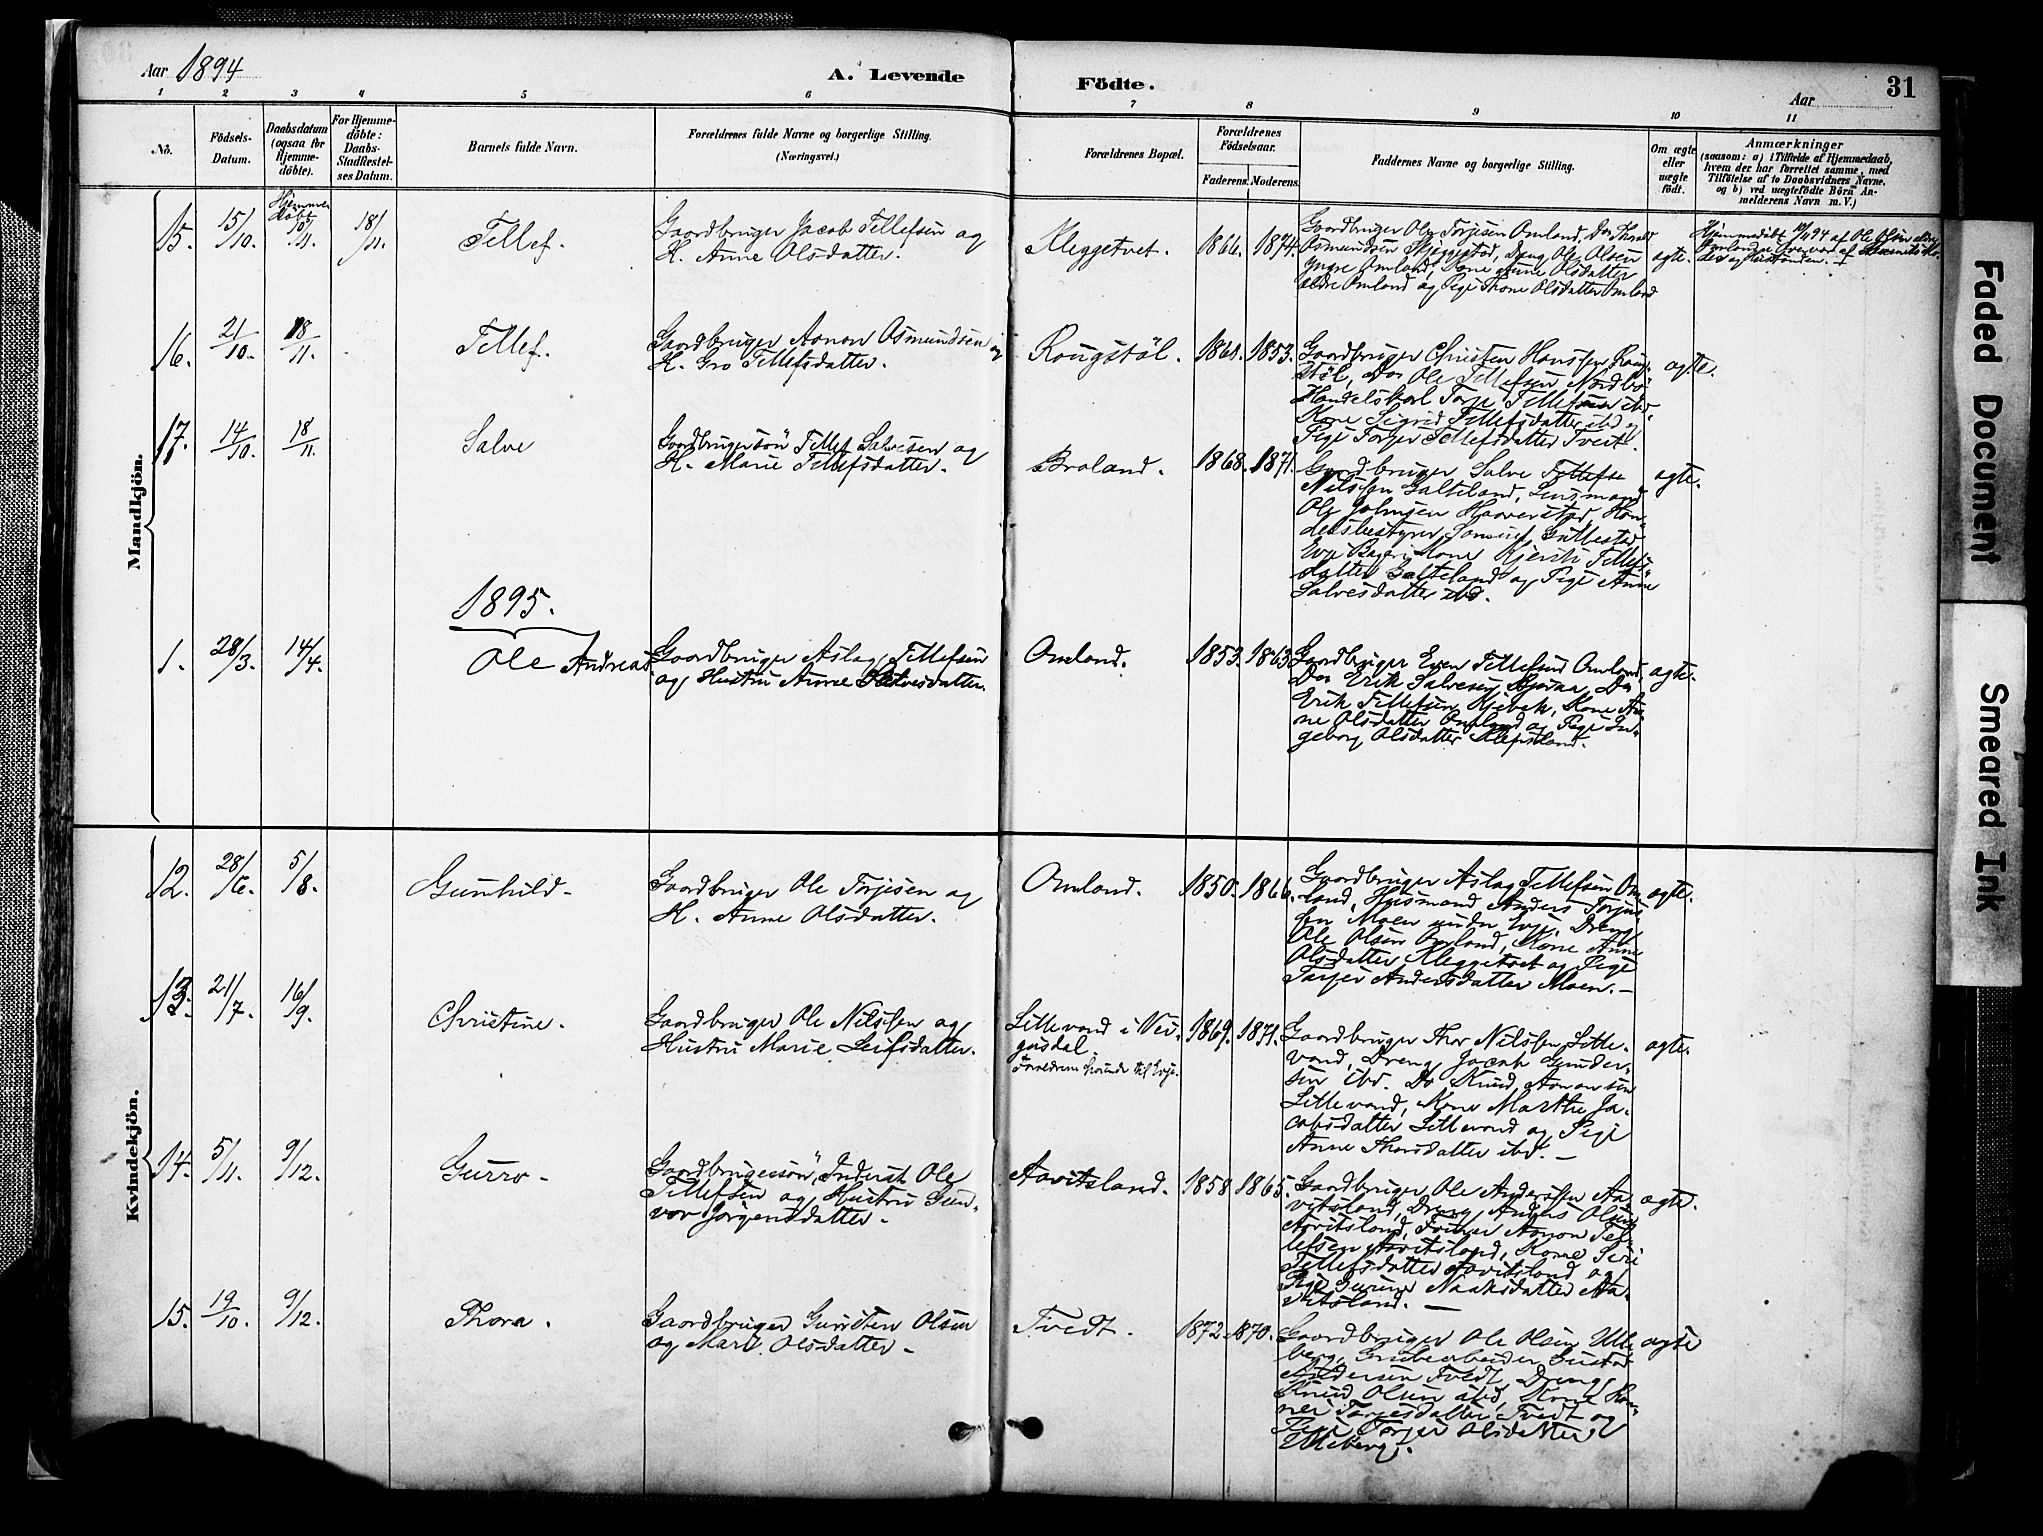 Aar 1894
A. Levende
Födte.
Aar
31
1 2 3 4 5 6 7 8 9 10 11
No.
Födsels-
Datum.
Daabsdatum
(ogsaa for
Hjemme-
döbte).
For Hjemme-
döbte:
Daabs-
Stadfæstel-
ses Datum.
Barnets fulde Navn.
Forældrenes fulde Navne og borgerlige Stilling.
(Næringsvei.)
Forældrenes Bopæl.
Forældrenes
Födselsaar.
Faderens. Moderens.
Faddernes Navne og borgerlige Stilling.
Om ægte
eller
uægte
födt.
Anmærkninger
(saasom: a) i Tilfælde af Hjemmedaab,
hvem der har forrettet samme, med
Tilföielse af to Daabsvidners Navne,
og b) ved uægtefödte Börn An-
melderens Navn m. V.)
Mandkjön.
15.
15/10.
Hjemme
döbt
10/11.
18/11.
Tellef.
Gaardbruger Jacob Tellefsen og
H. Anne Olsdatter.
Kleggetvet.
1866. 1874.
Gaardbruger Ole Torjesen Omland, Do
Osmundsen Dreng Ole Olsen
Yngre Omland, Kone Anne Olsdatter
ældre Omland og Pige Thone Olsdatter Omland
ægte.
Hjemmedöbt 10/11 94 af Ole Olsen
16.
21/10.
18/11.
Tellef.
Gaardbruger Aanon Osmundsen og
H. Gro Tellefsdatter.
Rougstöl.
1861. 1853.
Gaardbruger Christen Hanssen Roug-
stöl, Do Ole Tellefsen Nordbö
Handelskarl Torje Tellefsen ibd.
Kone Sigrid Tellefsdatter ibd og
Pige Torjer Tellefsdatter Tveit.
ægte.
17.
14/10.
18/11.
Salve
Gaardbrugersön Tellef Salvesen og
H. Marie Tellefsdatter.
Braland.
1868. 1871.
Gaardbruger Salve Tellefse
Nilssen Galteland, Lensmand
Ole Johnsen Haaverstad, Han-
delsbestyrer
Evje Kone Tellefs-
datter Galteland og Pige Anne
Salvesdatter ibd.
ægte.
1895.
1.
28/3.
14/4.
Ole Andreas.
Gaardbruger Aslag Tellefsen
og Hustru Anne Salvesdatter.
Omland.
1853. 1863.
Gaardbruger Even Tellefsen Omland,
Do Erik Salvesen Do
Erik Tellefsen Kjebek, Kone An-
ne Olsdatter Omland og Pige In-
geborg Olsdatter
ægte.
Kvindekjön.
12.
28/6.
5/8.
Gunhild-
Gaardbruger Ole Torjesen og
H. Anne Olsdatter.
Omland.
1850. 1866.
Gaardbruger Aslag Tellefsen Om-
land, Husmand Anders Torjus-
sen Moen under Evje, Dreng
Ole Olsen Omland, Kone Anne
Olsdatter Kleggetvet og Pige
Torjer Andersdatter Moen.-
ægte.
13.
21/7.
16/9.
Christine.
Gaardbruger Ole Nilssen og
Hustru Marie Leifsdatter.
Littevand i Ve-
gusdal.
1869. 1871.
Gaardbruger Thor Nilssen Litte-
vand, Dreng Jacob Gunder-
sen ibd. Do Knud Aanonsen
Littevand, Kone Marthe Ja-
cobsdatter Littevand og Pige
Anne Thorsdatter ibd.-
ægte.
14.
5/11.
9/12.
Gurro-
Gaardbrugersön, Inderst Ole
Tellefsen og Hustru Gun-
vor Jörgensdatter-
Aavitsland.
1858 1865.
Gaardbruger Ole Anderssen Aa-
vitsland, Dreng Anders Olsen
Aavitsland, Aanon Tel-
lefsen Aavitsland, Kone Siri
Tellefsdatter Aavitsland og
Pige Aa-
vitsland.-
ægte.
15.
19/10.
9/12.
Thora.
Gaardbruger Olsen
og Mari Olsdatter-
Tvedt.
1872 1870.
Gaardbruger Ole Olsen Utte-
berg, Grubearbeider Gustav
Andersen Tvedt, Dreng
Knud Olsen ibid, Kone
Torjesdatter Tvedt og
Pige Torjer Olsdatter
Utteberg.
ægte
Faded Document
Smeared Ink